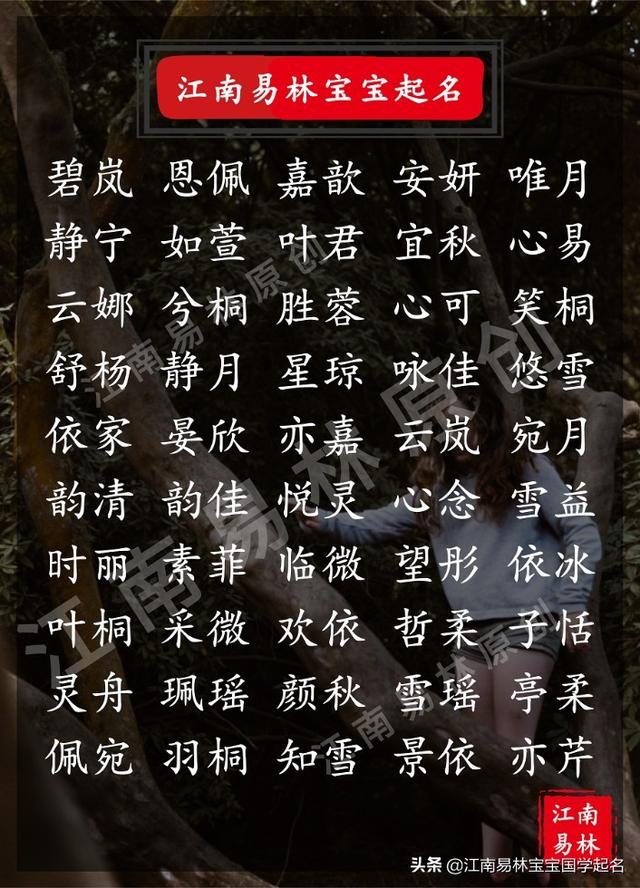 江南易林宝宝起名
碧岚 恩佩 嘉歆 安妍 唯月
静宁 如萱 叶君 宜秋 心易
云娜 兮桐 胜蓉 心可 笑桐
舒杨 静月 星琼 咏佳 悠雪
依家 晏欣 亦嘉 云岚 宛月
韵清 韵佳 悦灵 心念 雪益
时丽 素菲 临微 望彤 依冰
叶桐 采微 欢依 哲柔 子恬
灵舟 珮瑶 颜秋 雪瑶 亭柔
佩宛 羽桐 知雪 景依 亦芹
江南易林原创
江南易林原创
江南易林原创
江南
易林
头条 @江南易林宝宝国学起名